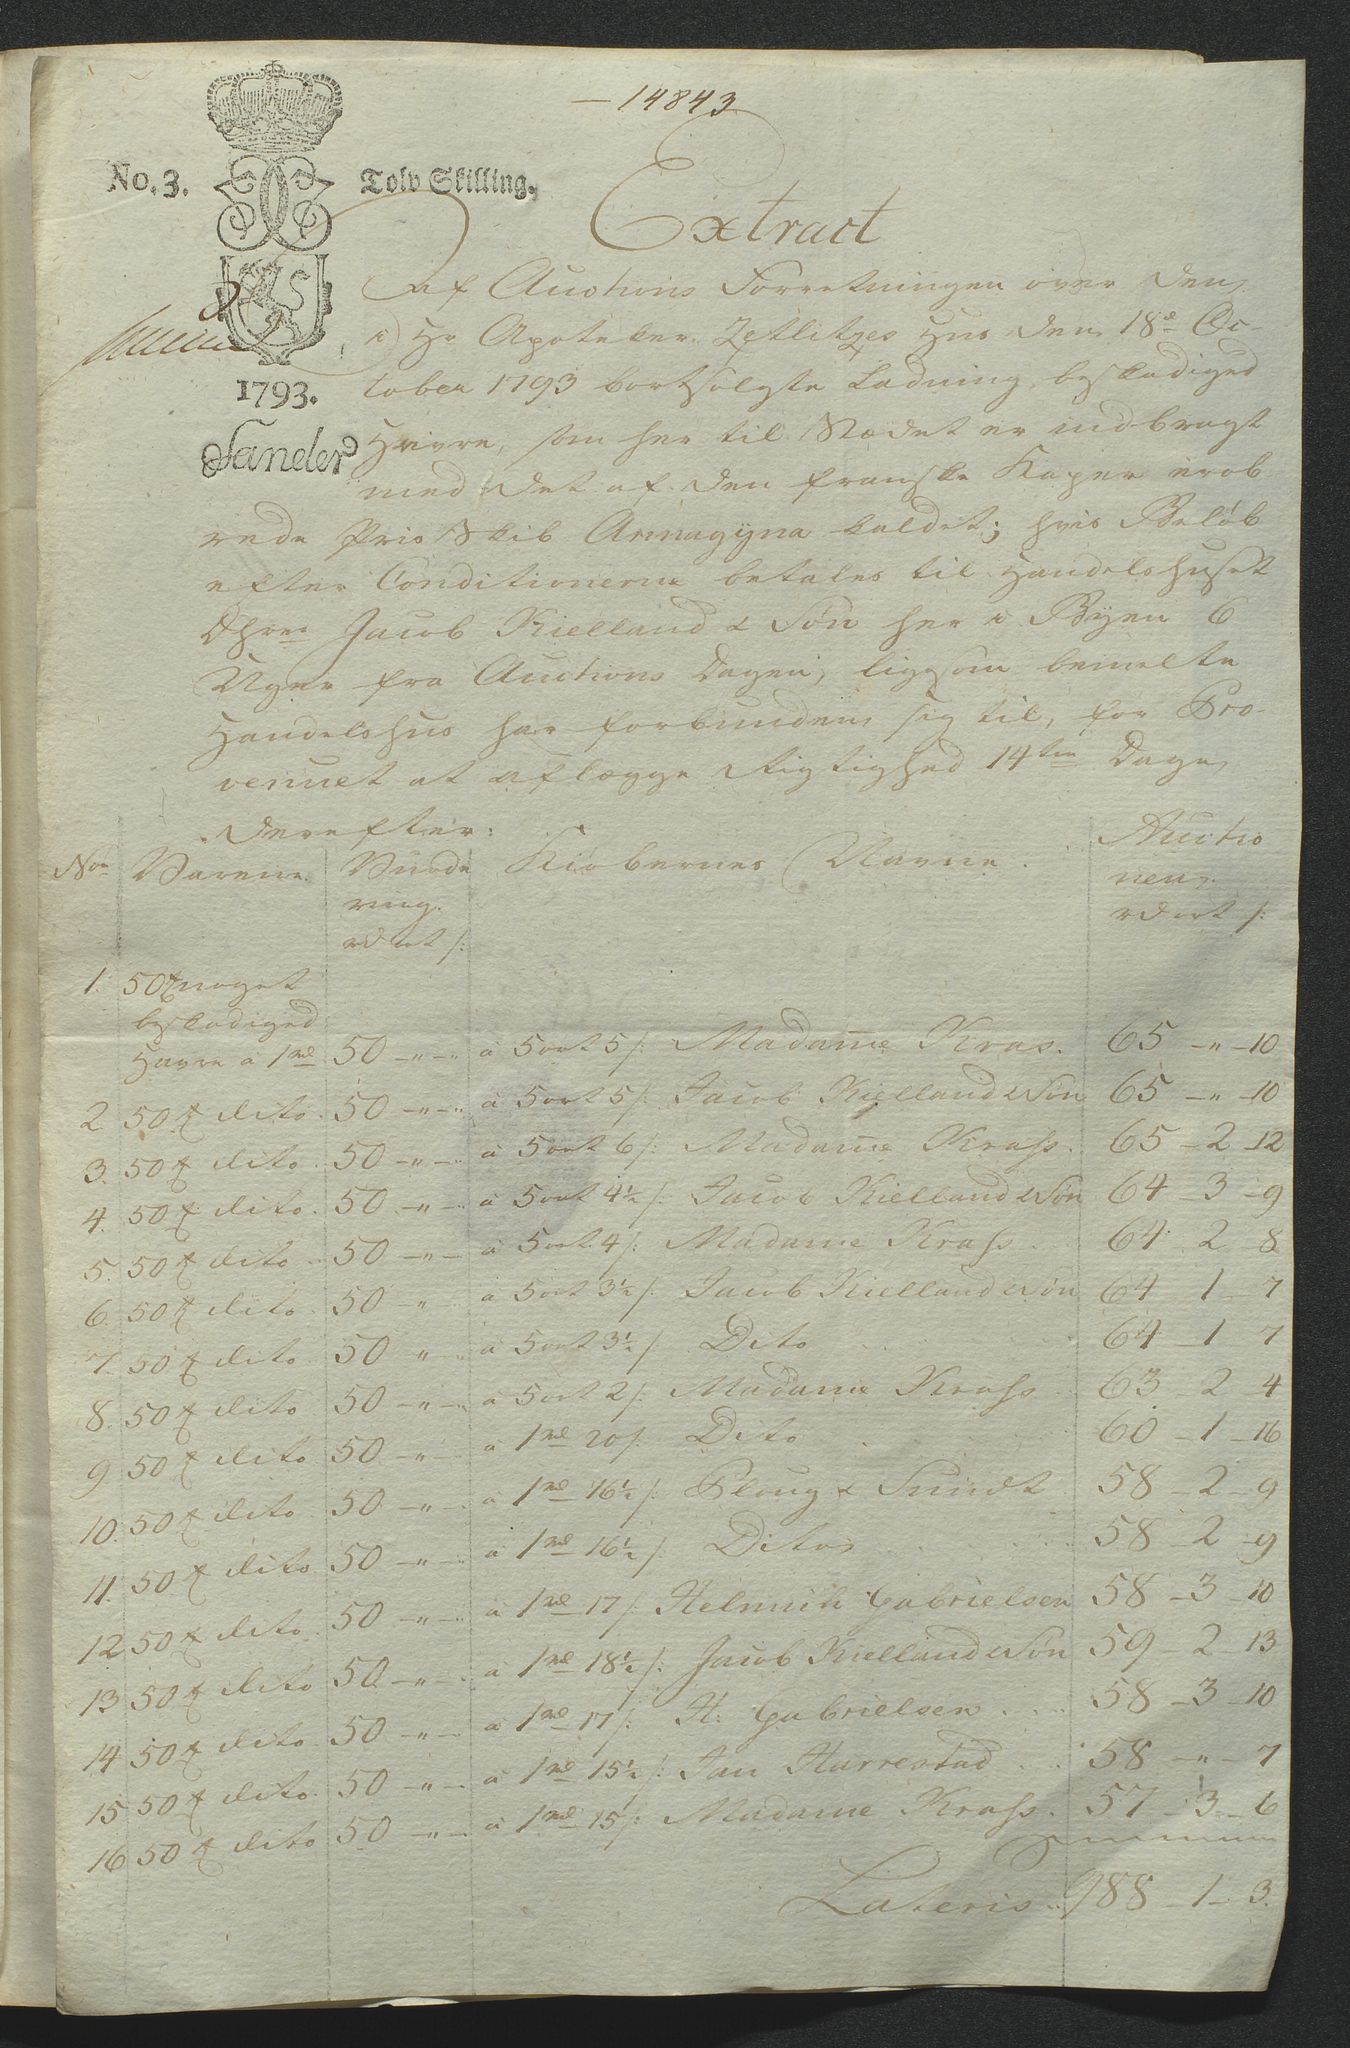 — 14843
No. 3. Tolv Skilling.
1793.
Extract
af Auctions Forretningen over den
i Hr Apoteker Zetlitzes Huus den 18de Oc-
tober 1793 bortsolgte Ladning beskadiged
Havre, som her til Stædet er indbragt
med det af den franske Kaper erob
rede Pris Skib Annagijna kaldet; hvis Beløb
efter Conditionerne betales til Handelshuset
Dhrr Jacob Kielland & Søn her i Byen 6
Uger fra Auctions Dagen, ligesom bemelte
Handelshus har forbunden sig til, for Pro-
venuet at aflægge Rigtighed 14ten Dage
derefter:
No Varene. Vurde Kiøbernes Navne. Auctio
ring. nen.
rd ort s: rd ort s:
1. 50 noget
beskadiged
Havre a 1 rd 50 - " - " a 5 ort 5 s: Madame Kras. 65 - " - 10
2. 50 dito 50 - " - " a 5 ort 5 s: Jacob Kielland & Søn 65 - " - 10
3. 50 dito 50 - " - a 5 ort 6 s: Madame Krass. 65 - 2 - 12
4. 50 dito. 50 - " - a 5 ort 4½ s: Jacob Kielland & Søn 64 - 3 - 9
5. 50 dito 50 - " - a 5 ort 4 s: Madame Krass 64 - 2 - 8
6. 50 dito. 50 - " a 5 ort 3½ s: Jacob Kielland & Søn 64 - 1 - 7
7. 50 dito 50 " a 5 ort 3½ s: Dito 64 - 1 - 7
8. 50 dito 50 - " - a 5 ort 2 s: Madame Krass 63 - 2 - 4
9. 50 dito 50 - " - a 1 rd 20 s: Dito 60 - 1 - 16
10. 50 dito 50 - " - a 1 rd 16½ s: Ploug & Sundt 58 - 2 - 9
11. 50 dito 50 - " - a 1 rd 16½ s: Dito 58 - 2 - 9
12. 50 dito. 50 - " - a 1 rd 17 s: Helmich Gabrielsen 58 - 3 - 10
13. 50 dito 50 - " - a 1 rd 18½ s: Jacob Kielland & Søn 59 - 2 - 13
14. 50 dito. 50 - " - a 1 rd 17 s: H: Gabrielsen 58 - 3 - 10
15. 50 dito. 50 - " - a 1 rd 15½ s: Jan Harrestad 58 - " - 7
16. 50 dito 50 - " - a 1 rd 15 s: Madame Krass. 57 - 3 - 6
Lateris 988 - 1 - 3.